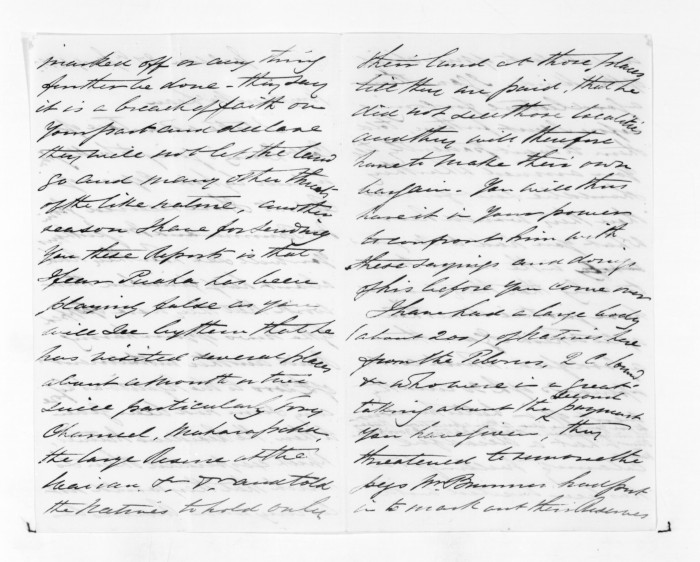 marked off or any thing
further be done - they say
it is a breach of faith on
Your part and declare
they will not let the land
go and many other threats
of the like nature, another
reason I have for sending
You these Reports is that
I fear Puaha has been
playing false as you
will see by them that he
has visited several places
about a month or two
since particularly Tory
Channel,
the large Reserve at the
Wairau &c &c and told
the Natives to hold only
their land at those places
till they are paid, that he
did not sell those localities
and they will therefore
have to make their own
bargain - You will thus
have it in Your power
to confront him with
these sayings and doings
of his before You come over
I have had a large body
(about 200) of Natives here
from the Pelorus, Q C Sound
&c who were in a great
talking about the beyond payment
You have given, they
threatened to remove the
pegs Mr Brunner had put
in to mark out their Reserves